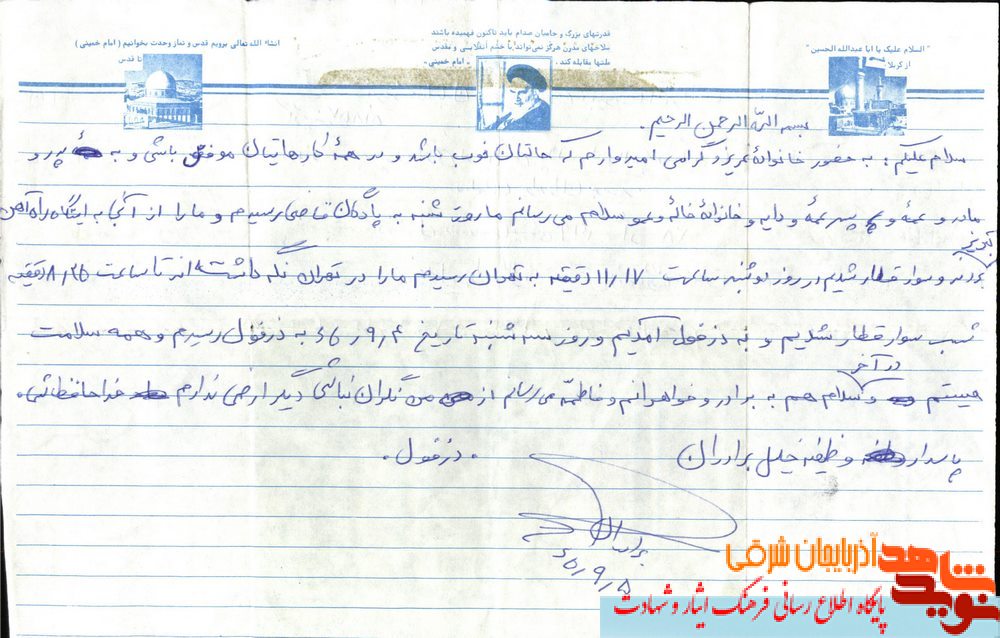 انشاء الله تعالی برویم قدس و نماز وحدت بخوانیم ( امام خمینی )
تا قدس
قدرتهای بزرگ و حامیان صدام باید تاکنون فهمیده باشند
سلاحهای مدرن هرگز نمی‌تواند با خشم انقلابی و مقدس
ملتها مقابله کند . " امام خمینی "
" السلام علیک یا ابا عبدالله الحسین "
از کربلا
بسم الله الرحمن الرحیم .
سلام علیکم : به حضور خانوادهٔ عزیز و گرامی امیدوارم که حالتان خوب باشد و در همهٔ کارهایتان موفق باشی و به پدر و
مادر و عمه و پسر عمهٔ و دایه و خانوادهٔ خاله و عمو سلام می رسانم ما روز شنبه به پادگان قاضی رسیدیم و ما را از آنجا به ایستگاه راه آهن
تبریز
بردند و سوار قطار شدیم در روز دوشنبه ساعت ۱۱/۱۷ دقیقه به تهران رسیدیم ما را در تهران نگه داشته اند تا ساعت ۸/۲۵ دقیقه
شب سوار قطار شدیم و به دزفول آمدیم و روز سه شنبه تاریخ ۶۵/۹/۴ به دزفول رسیدم و همه سلامت
در آخر
هستم و سلام هم به برادر و خواهرانم و فاطمه می رسانم از من نگران نباشی دیگر عرضی ندارم خداحافظ شما .
پاسدار وظیفه خلیل برادران
. دزفول .
برادران
۶۵/۹/۵
نوید شاهد
آذربایجان شرقی
پایگاه اطلاع رسانی فرهنگ ایثار و شهادت